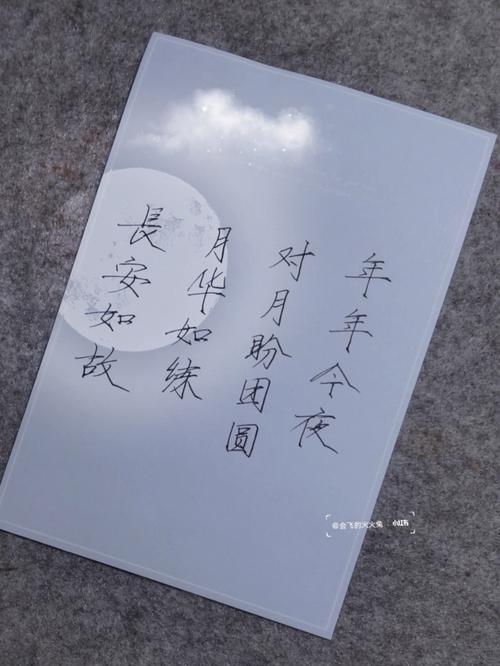 年年今夜
对月盼团圆
月华如练
長安如故
@会飞的火火兔 小红书